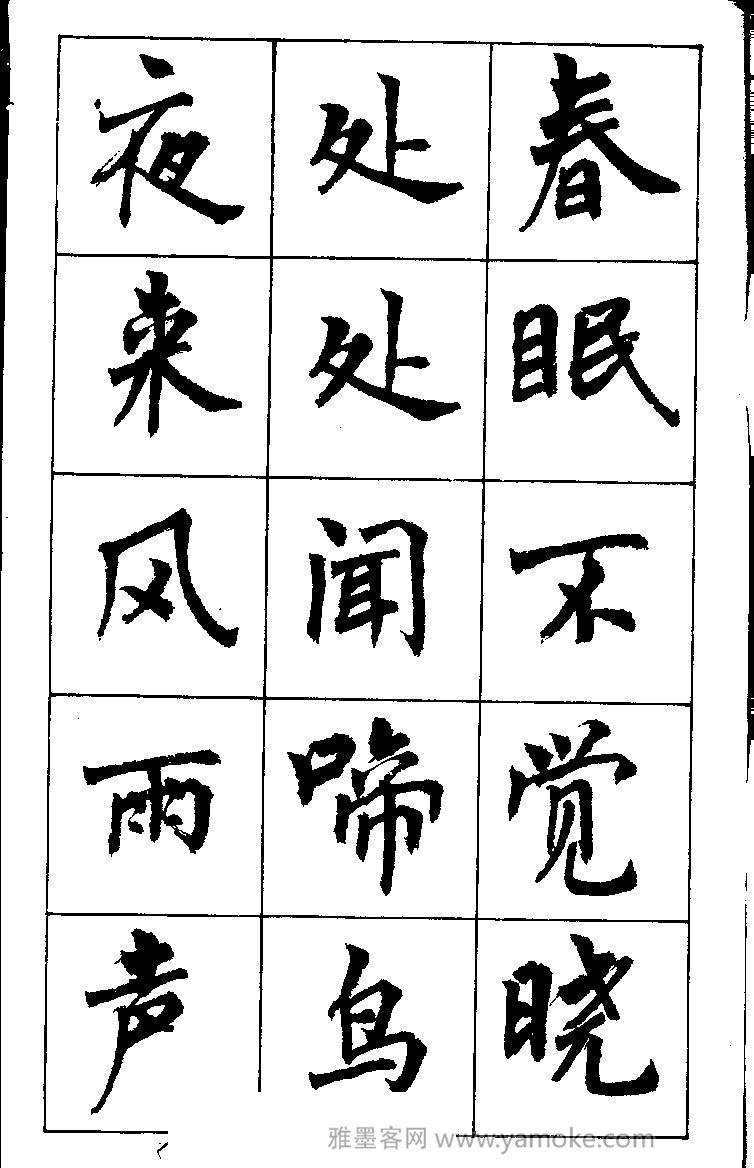 春眠不觉晓
处处闻啼鸟
夜来风雨声
雅墨客网 www.yamoke.com